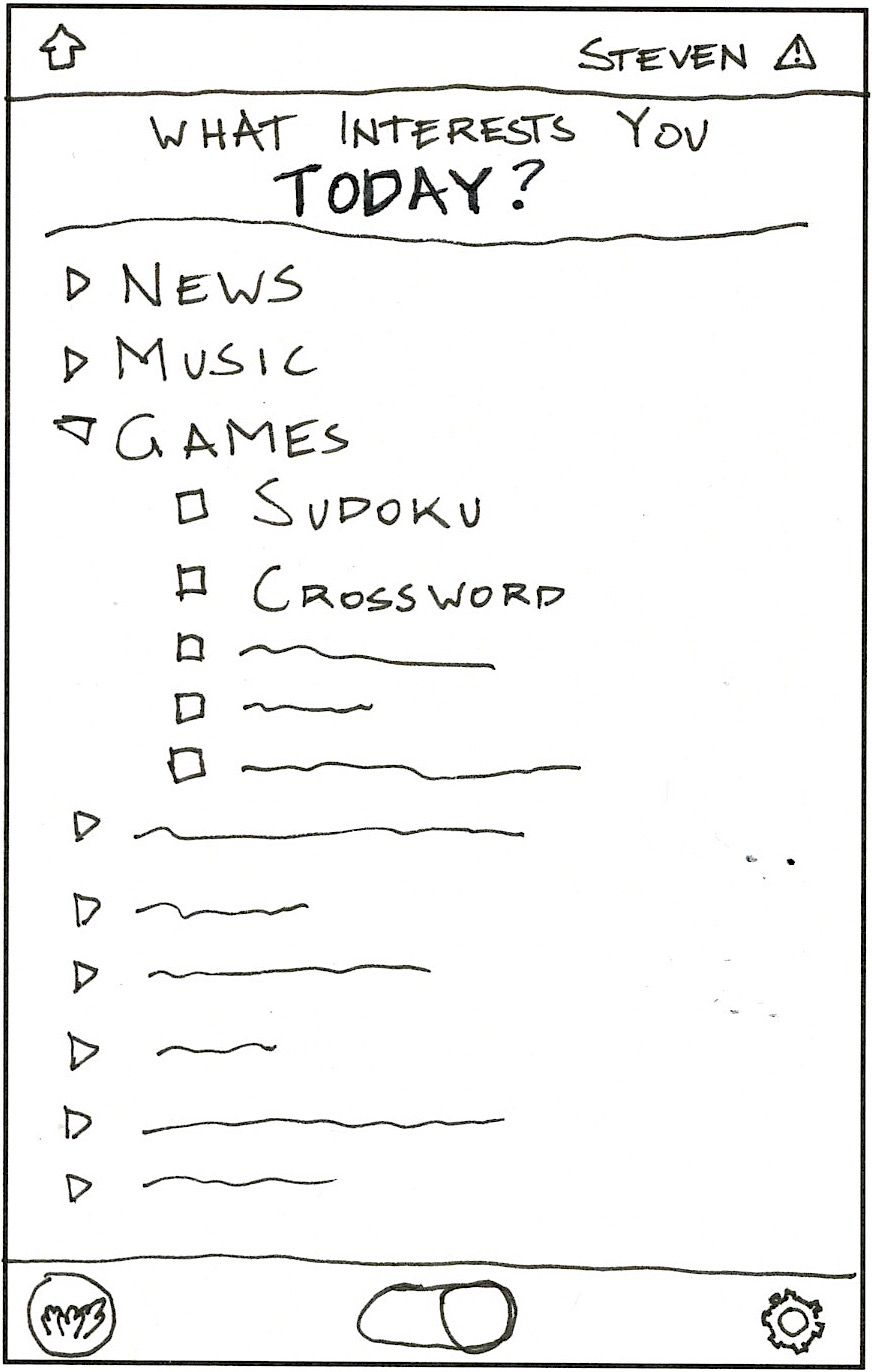 STEVEN
WHAT INTERESTS YOU
TODAY?
NEWS
MUSIC
GAMES
SUDOKU
CROSSWORD